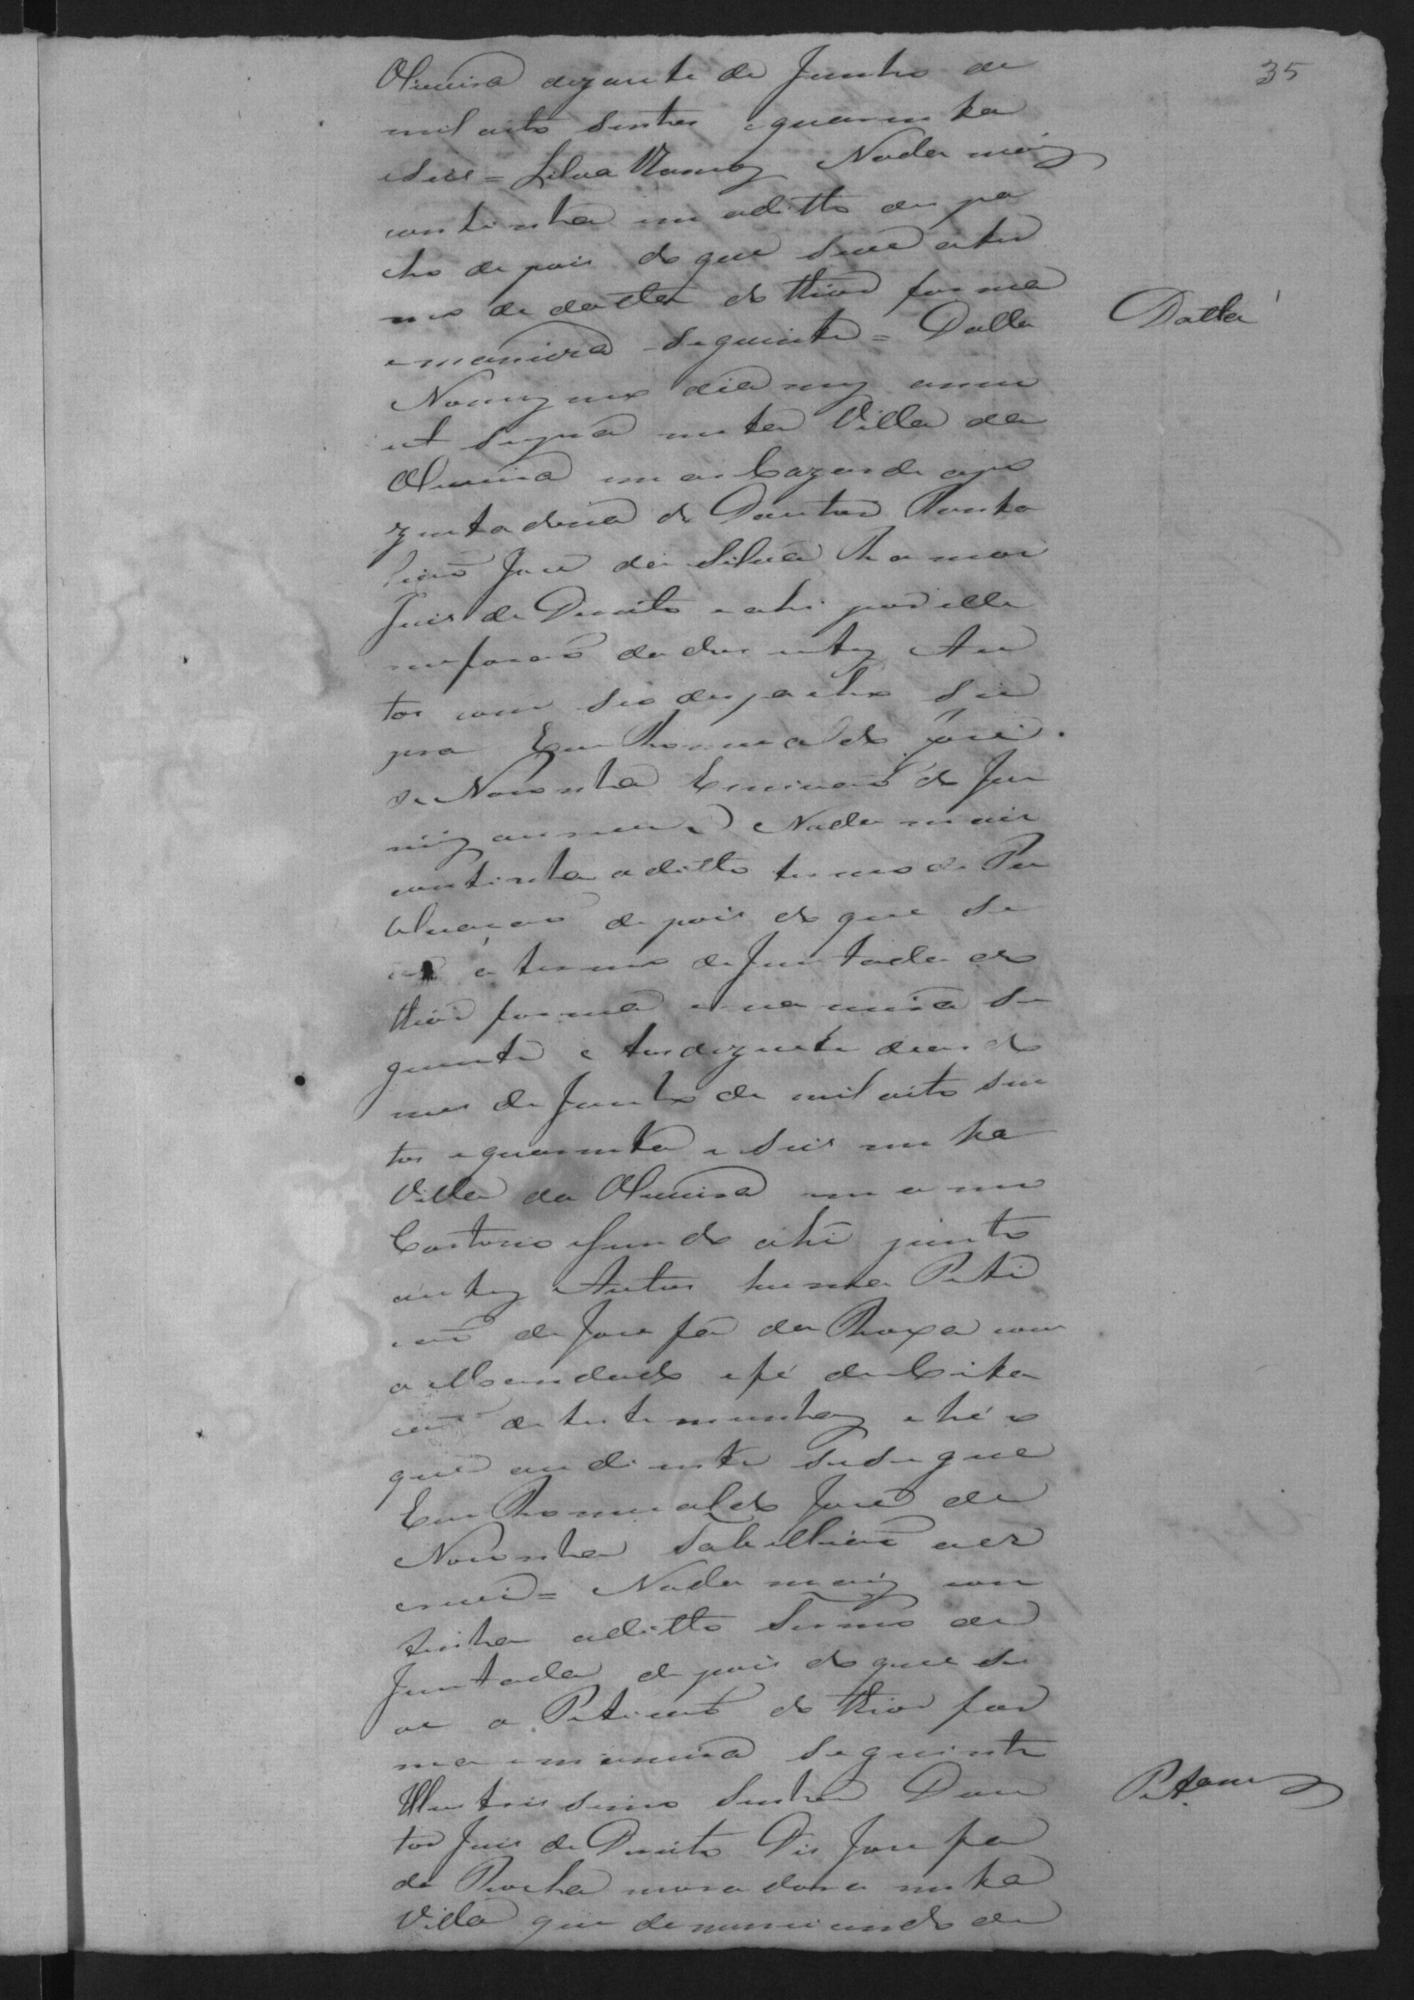 35
Oliveira dezasete de Junho de
mil oito sentos e quarenta
e seis = Silva Ramos Nada mais
continha em o ditto despa
cho depois do que se ve o ter
mo de datta do theor forma
e maneira seguinte = Datta
Datta
No mesmo dia mes anno
ut supra nesta Villa da
Oliveira em as Cazas de apo
zentadoria do Doutor
José da Silva Ramos
Juis de Direito e ahi por elle
me forão dados estes Au
tos com seo despacho su
pra Eu Romualdo José
de Noronha Escrivão do Ju
ri Nada mais
continha o ditto termo de Pu
blicação depois do que se
ve o termo de Juntada do
theor forma e maneira se
guinte Aos dezasete dias do
mes de Junho de mil oito sen
tos e quarenta e seis nesta
Villa da Oliveira em o meo
Cartorio e sendo ahi junto
aestes Autos huma Peti
ção de Josefa da Roxa com
o Mandado e fé de Cita
ção de testemunhas e hé o
que aodiante se segue
Eu Romualdo José de
Noronha Tabellião o es
crevi = Nada mais con
tinha o ditto Termo de
Juntada depois do que se
ve a Petição do theor for
ma e maneira seguinte
Illustrissimo Senhor Dou
Petam
tor Juis de Direito Dis Josefa
da Rocha moradora nesta
Villa que denunciando de